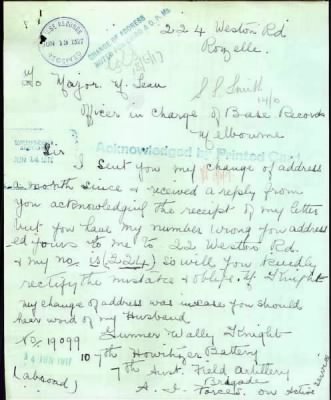 BASE RECORDS
JUN 13 1917
CHANGE OF ADDRESS
NOTED FOR
224 Weston Rd
Rozelle.
To Major J. Lean
Officer in charge of Base Records
Melbourne
Acknowledged by Printed Card
Sir
I sent you my change of address
a month since & received a reply from
you acknowledging the receipt of my letter
but you have my number wrong you address
ed yours to me to 22 Weston Rd.
& my no. is (224) so will you kindly
rectify the mistake & oblige. M Knight
my change of address was incase you should
hear word of my Husband
No 19099 Gunner Wally Knight
107th Howitzer Battery
7th Aust. Field Artillery
Brigade
(abroad) A. I. Forces. on Active
Service